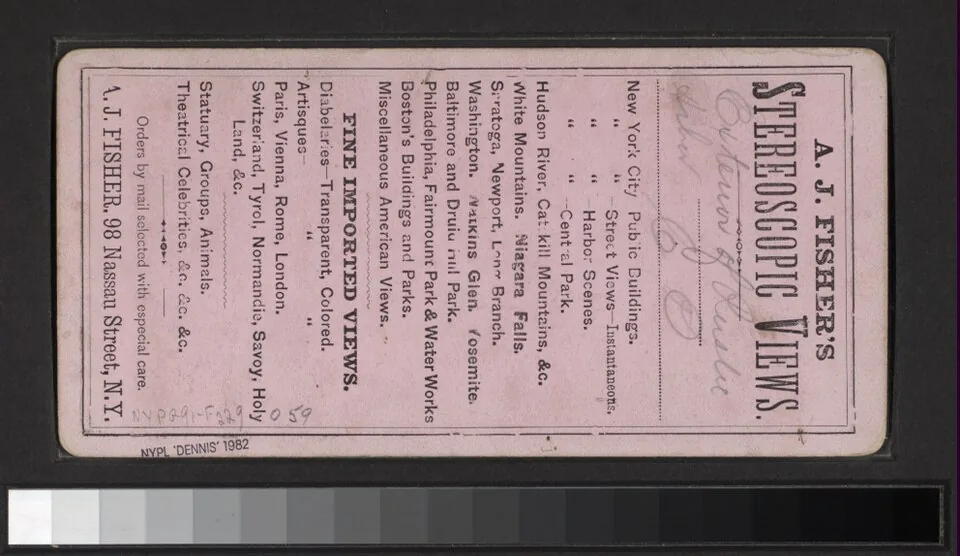 A. J. FISHER'S
STEREOSCOPIC VIEWS.
Exterior of Music
New York City Public Buildings.
" " —Street Views—Instantaneous.
" " —Harbor Scenes.
" " —Central Park.
Hudson River, Catskill Mountains, &c.
White Mountains. Niagara Falls.
Saratoga, Newport, Long Branch.
Washington. Watkins Glen. Yosemite.
Baltimore and Druid Hill Park.
Philadelphia, Fairmount Park & Water Works
Boston's Buildings and Parks.
Miscellaneous American Views.
FINE IMPORTED VIEWS.
Diableries—Transparent, Colored.
Artisques— " "
Paris, Vienna, Rome, London.
Switzerland, Tyrol, Normandie, Savoy, Holy
Land, &c.
Statuary, Groups, Animals.
Theatrical Celebrities, &c. &c. &c.
Orders by mail selected with especial care.
A. J. FISHER, 98 Nassau Street, N.Y.
059
NYPL 'DENNIS' 1982